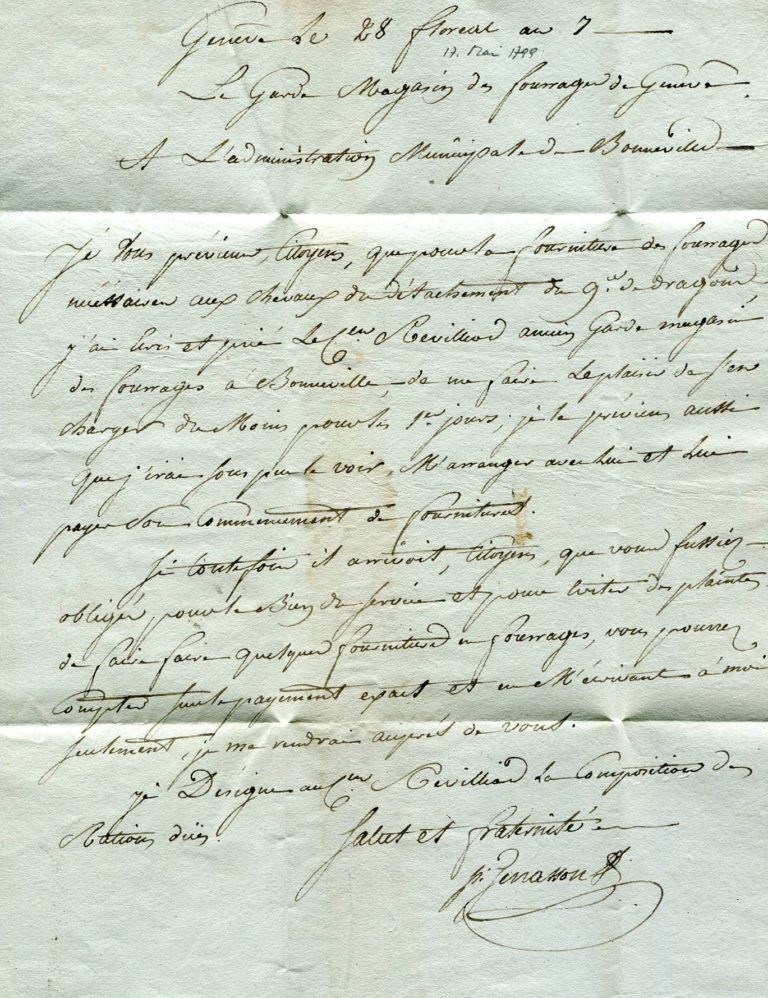 Genêve Le 28 floreal an 7
17. Mai 1799
Le Garde Magasin des fourrages de Genêve
A L'administration Municipale de Bonneville
Je Vous préviens, Citoyens, que pour la fourniture des fourrages
nécéssaires aux chevaux du détachement du 9.e de dragons
j'ai écris et prié Le C.en Révilliod ancien Garde magasin
des fourrages à Bonneville, de me faire Le plaisir de s'en
charger du Moins pour les 1.er jours; je le préviens aussi
que j'irai sous peu le voir, M'arranger avec Lui et Lui
payer Son Commencement de fournitures.
Si toutefois il arrivoit, Citoyens, que vous fussiez
obligés, pour le Bien du Service et pour éviter des plaintes
de faire faire quelques fournitures en fourrages, vous pouvez
Compter sur le payement exact et en M'écrivant à moi
seulement, je me rendrai auprès de vous.
Je Désigne au C.en Révilliod La Composition des
Rations dües.
Salut et fraternité